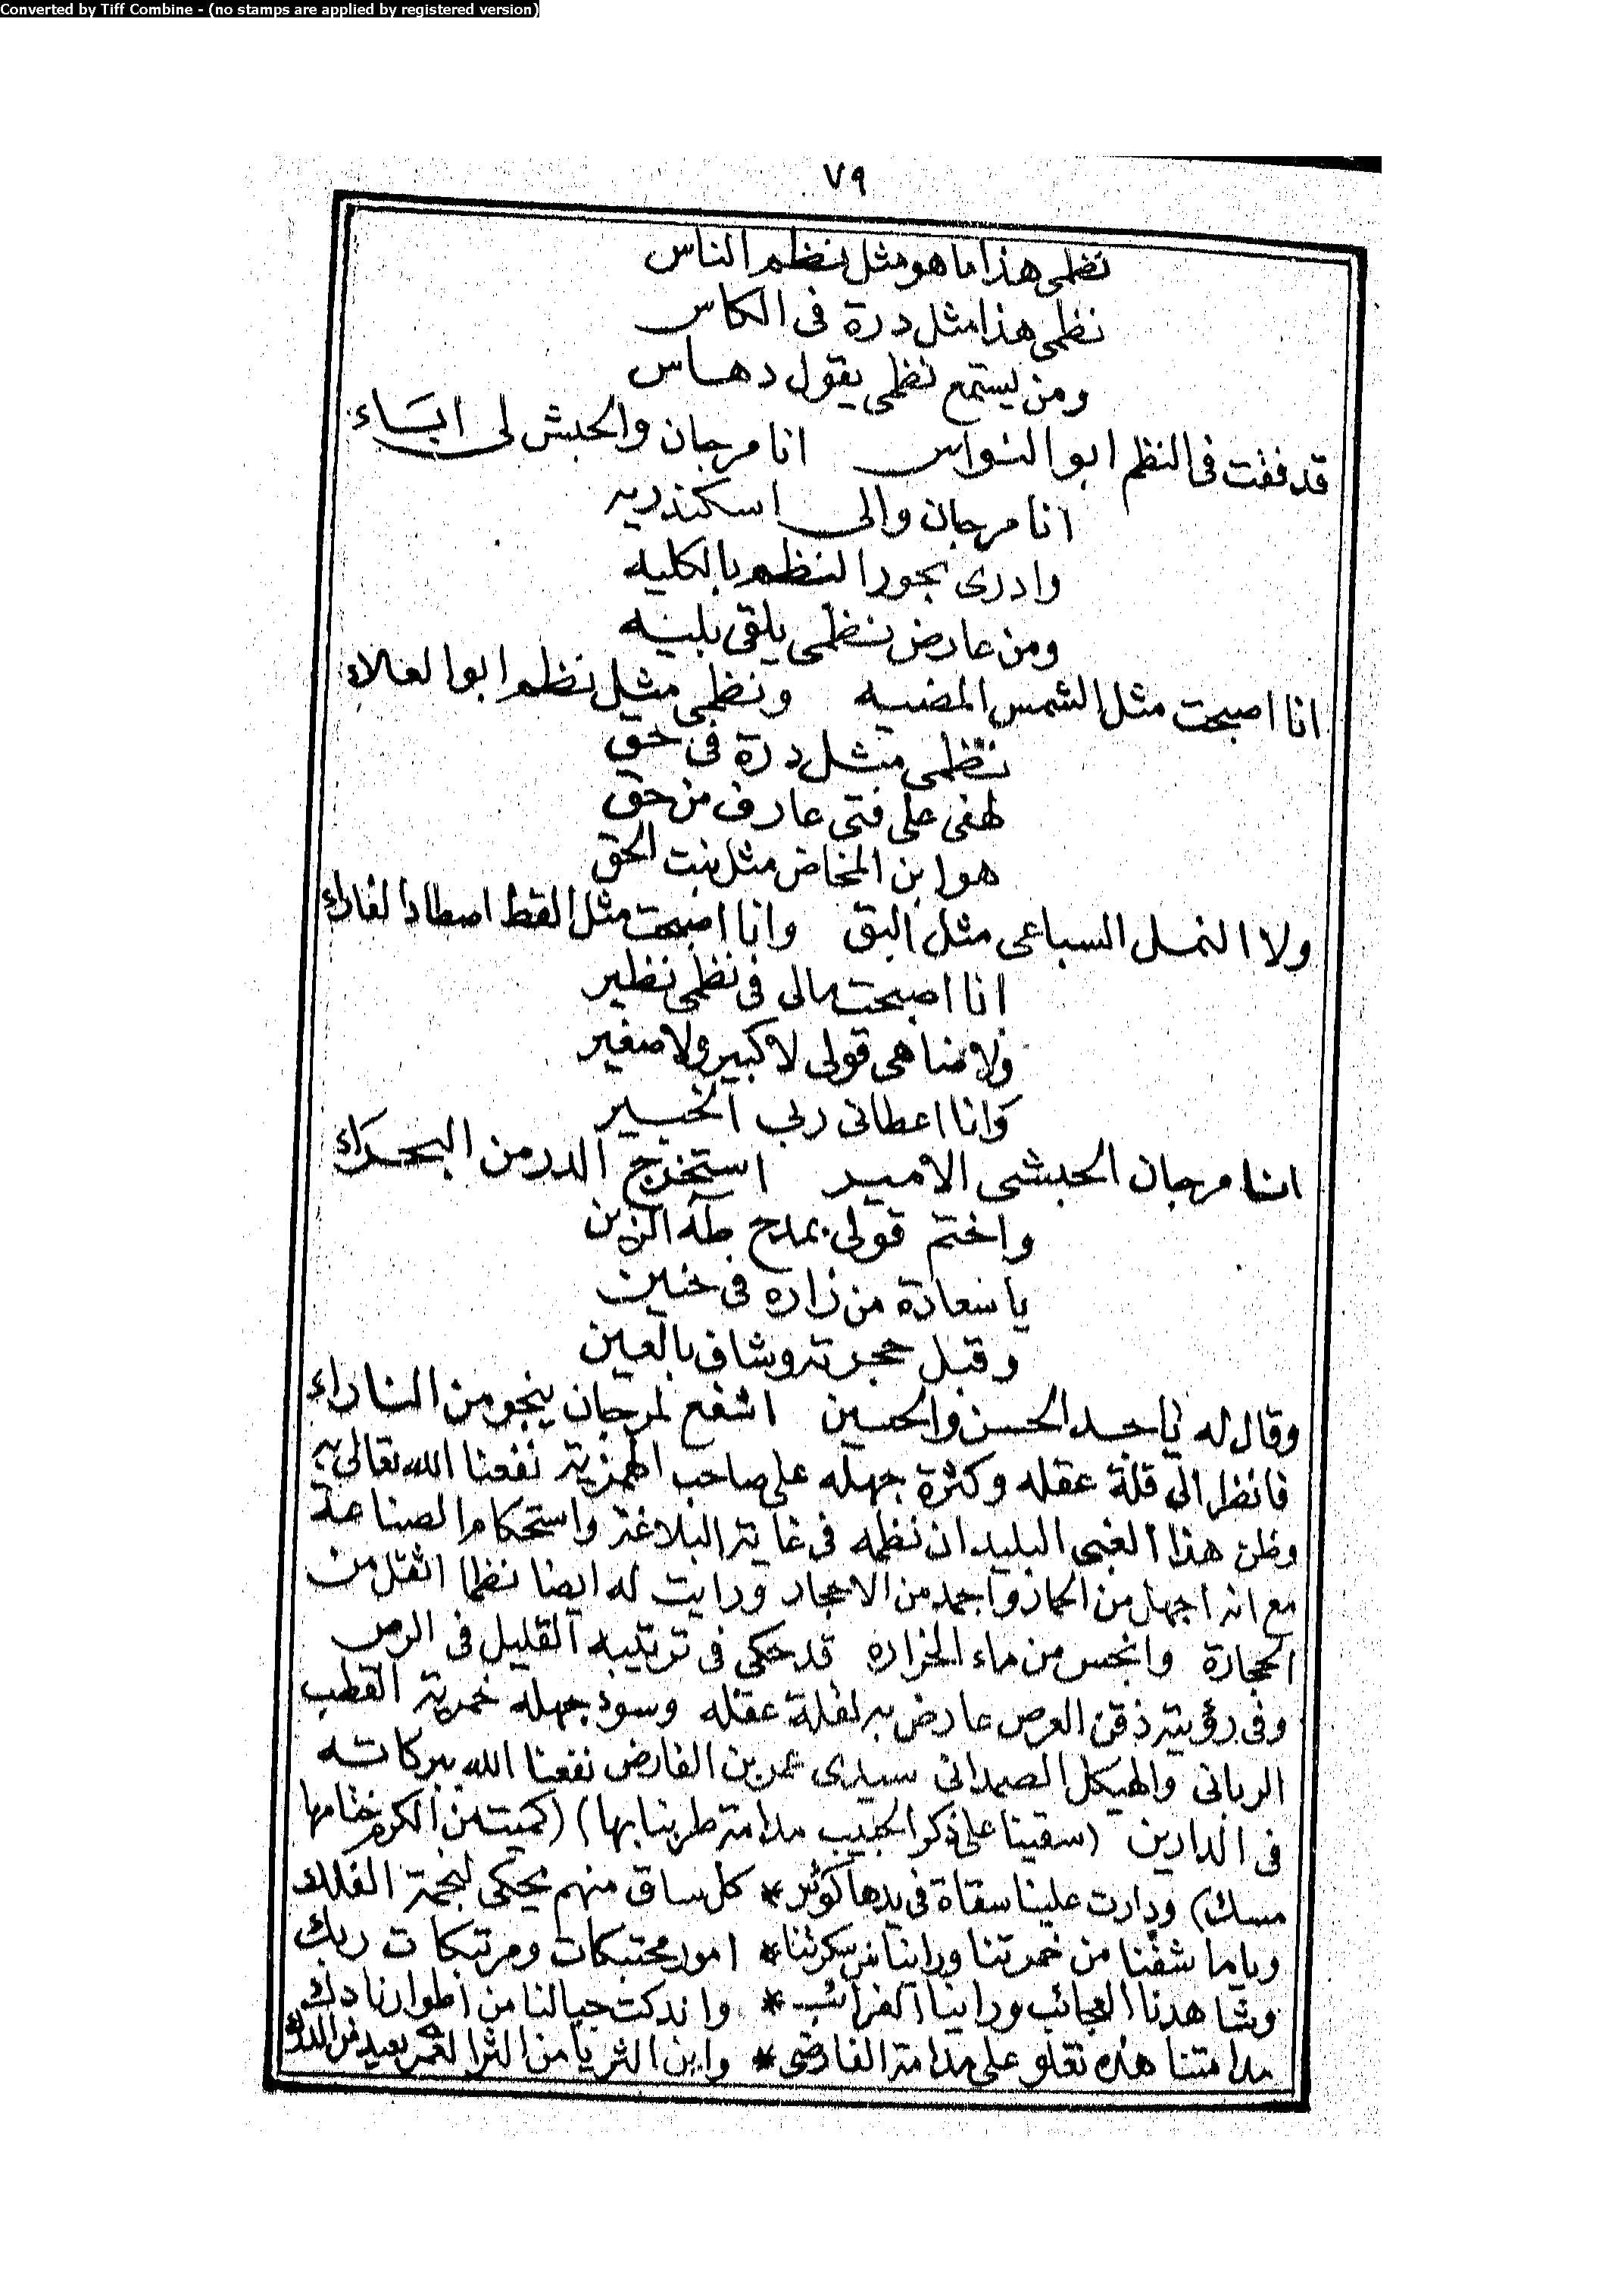 Converted by Tiff Combine - (no stamps are applied by registered version)
٧٩
نظمى هذا ما هو مثل نظم الناس
نظمى هذا مثل درة فى الكاس
ومن يستمع نظمى يقول دهاس
قد ففت فى النظم ابو النواس انا مرجان والحبش لى ابساء
انا مرجان والى اسكندريه
وادرى بحور النظم بالكليه
ومن عارض نظمى يلقى بليه
انا اصبحت مثل الشمس المضيه ونظمى مثل نظم ابو العلاء
نظمى مثل درة فى حق
لهفى على فتى عارف من حق
هو ابن المخاض مثل بنت الحق
ولا النمل السباعى مثل البق وانا اصبحت مثل القط اصطاد الفاراء
انا اصبحت مالى فى نظمى نظير
ولا ضاهى قولى لا كبير ولا صغير
وانا اعطانى ربى الخبير
انا مرجان الحبشى الامير استخرج الدر من البحراء
واختم قولى بمدح طه الزين
يا سعادة من زاره فى حنين
وقبل حجرته وشاف بالعين
وقال له يا جد الحسن والحسين اشفع لمرجان ينجو من الناراء
فانظر الى قلة عقله وكثرة جهله على صاحب الهمزية نفعنا الله تعالى به
وظن هذا الغبى البليد ان نظمه فى غاية البلاغة واستحكام الصناعة
مع انه اجهل من الحمار واجمد من الاحجار ورايت له ايضا نظما اثقل من
الحجارة وانجس من ماء الخراره قد حكى فى ترتيبه القليل فى الرص
وفى رؤيته ذقن العرص عارض به لقلة عقله وسوء جهله خمرية القطب
الربانى والهيكل الصمدانى سيدى عمر بن الفارض نفعنا الله ببركاته
فى الدارين (سقينا على ذكر الحبيب مدامة طربنا بها) (كميت من الكرم ختامها
مسك) ودارت علينا سقاة فى يدها كوثر * كل ساق منهم يحكى لنجمة الفلك
وياما شفنا من خمرتنا وراينا من سكرتنا * امور محتبكات ومرتبكات ربك
وشاهدنا العجائب وراينا الغرائب * واندكت جبالنا من اطوارنا دك
مدامتنا هذه تعلو على مدامة الفارضى * واين الثريا من الثرا القمر بعيد من الدرك